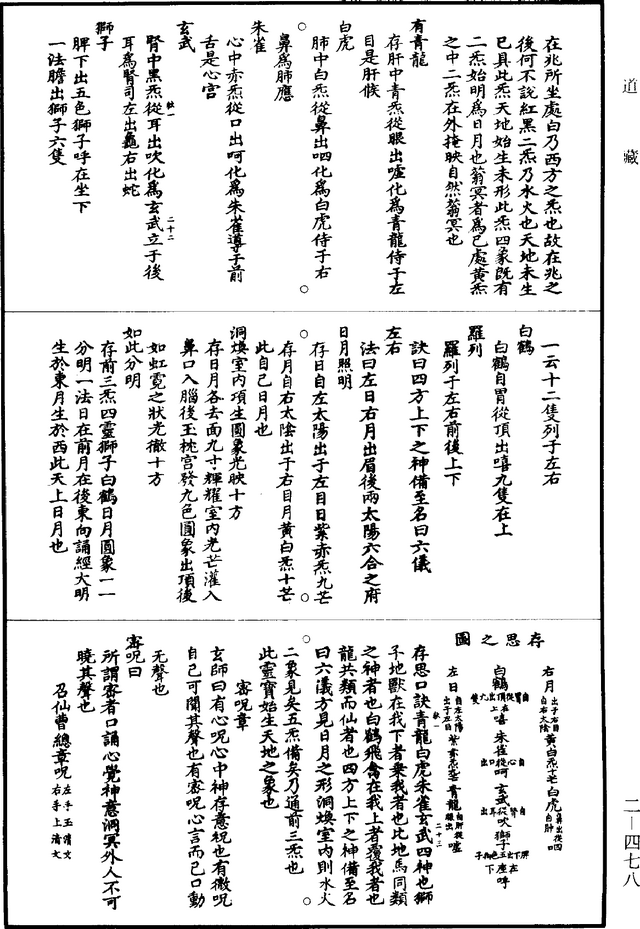 道藏
在兆所坐處白乃西方之炁也故在兆之
後何不說紅黑二炁乃水火也天地未生
已具此炁天地始生未形此炁四象既有
二炁始明為日月也蓊冥者為己處黃炁
之中二炁在外掩映自然蓊冥也
有青龍
存肝中青炁從眼出噓化為青龍侍于左
目是肝候
白虎
肺中白炁從鼻出呬化為白虎侍于右
鼻為肺應
朱雀
心中赤炁從口出呵化為朱雀導于前
舌是心宮
玄武
腎中黑炁從耳出吹化為玄武立于後
耳為腎司左出龜右出蛇
獅子
脾下出五色獅子呼在坐下
一法膽出獅子六隻
一云十二隻列于左右
白鶴
白鶴自胃從頂出嘻九隻在上
羅列
羅列于左右前後上下
訣曰四方上下之神備至名曰六儀
左右
法曰左日右月出眉後兩太陽六合之府
日月照明
存日自左太陽出于左目日紫赤炁九芒
存月自右太陰出于右目月黃白炁十芒
此自己日月也
洞煥室內項生圓象光映十方
存日月各去面九寸輝耀室內光芒灌入
鼻口入腦後玉枕宮發九色圓象出頂後
如虹霓之狀光徹十方
如此分明
存前三炁四靈獅子白鶴日月圓象一一
分明一法日在前月在後東向誦經大明
生於東月生於西此天上日月也
存思之圖
右月 出于右目自右太陰 黃白炁十芒 白虎 鼻出從呬自肺
白鶴 自胃從頂出九隻在上 嘻 朱雀 自心從口出 呵 玄武 自腎從耳出 吹 獅子 脾下出五色獅子在座下 呼
左日 自左太陽出于左目 紫赤炁九芒 青龍 自肝從眼出 噓
存思口訣青龍白虎朱雀玄武四神也獅
子地獸在我下者乘我者也比地馬同類
之神者也白鶴飛禽在我上者覆我者也
龍共類而仙者也四方上下之神備至名
曰六儀方見日月之形洞煥室內則水火
二象見矣五炁備矣乃通前三炁也
此靈寶始生天地之象也
密呪章
玄師曰有心呪心中神存意祝也有微呪
自己可聞其聲也有密呪心言而已口動
无聲也
密呪曰
所謂密者口誦心覺神意洞冥外人不可
曉其聲也
召仙曹總章呪 左手玉清文 右手上清文
二—四七八